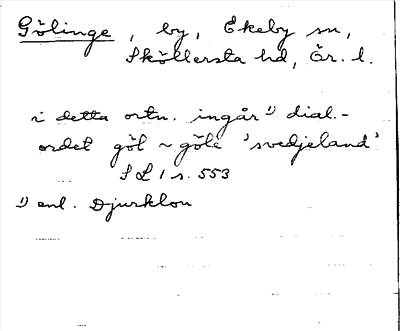 Gölinge, by, Ekeby sn,
Sköllersta hd, Ör. l.
i detta ortn. ingår ¹) dial.-
ordet göl ~ göle 'svedjeland'
SL 1 s. 553
¹) enl. Djurklou